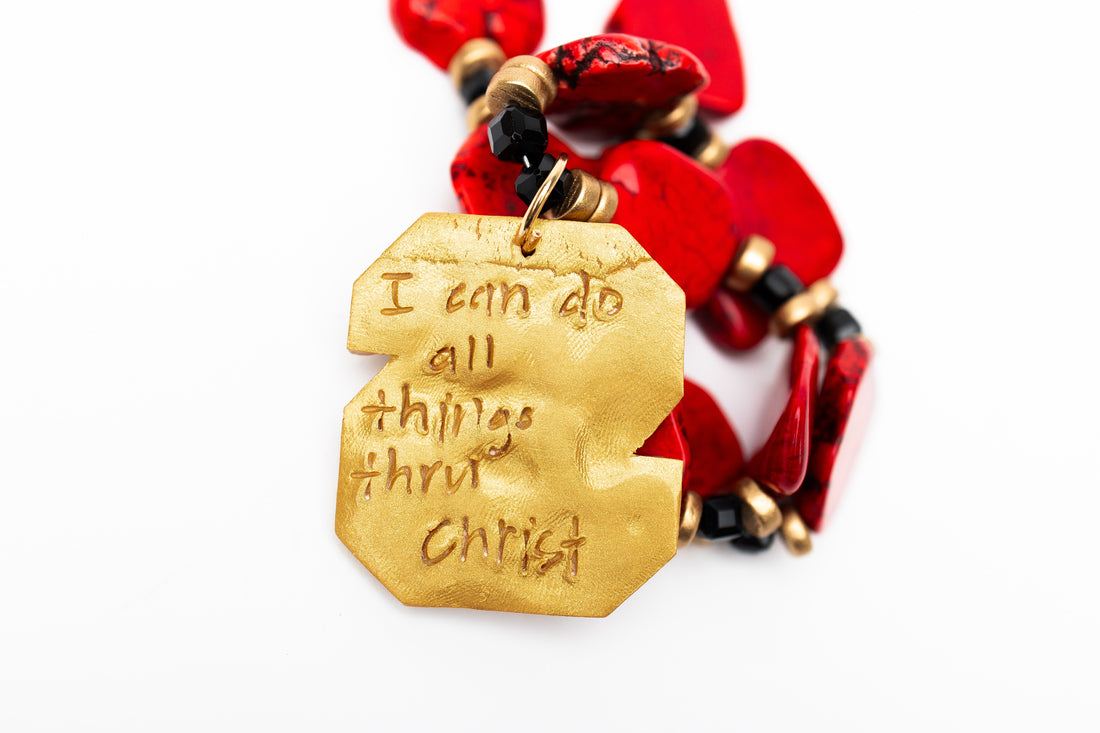 I can do
all
things
thru
Christ